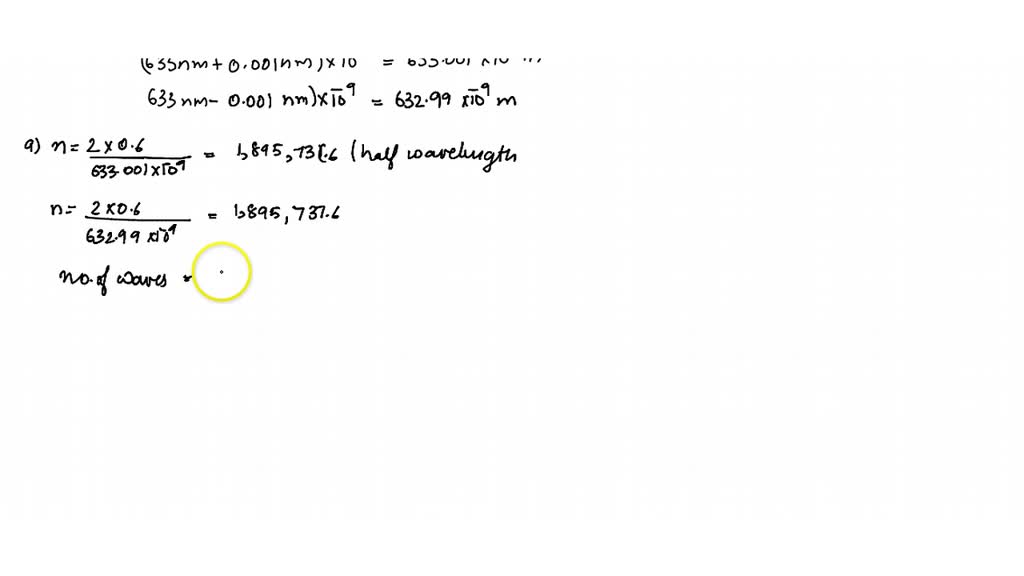 (633nm + 0.001nm) × 10 = 633.001 × 10 m
633 nm - 0.001 nm) × 10^-9 = 632.99 × 10^-9 m
a) n = 2 × 0.6 / 633.001 × 10^-9 = 1,895,731.6 (half wavelength
n = 2 × 0.6 / 632.99 × 10^-9 = 1,895,737.6
no. of waves =